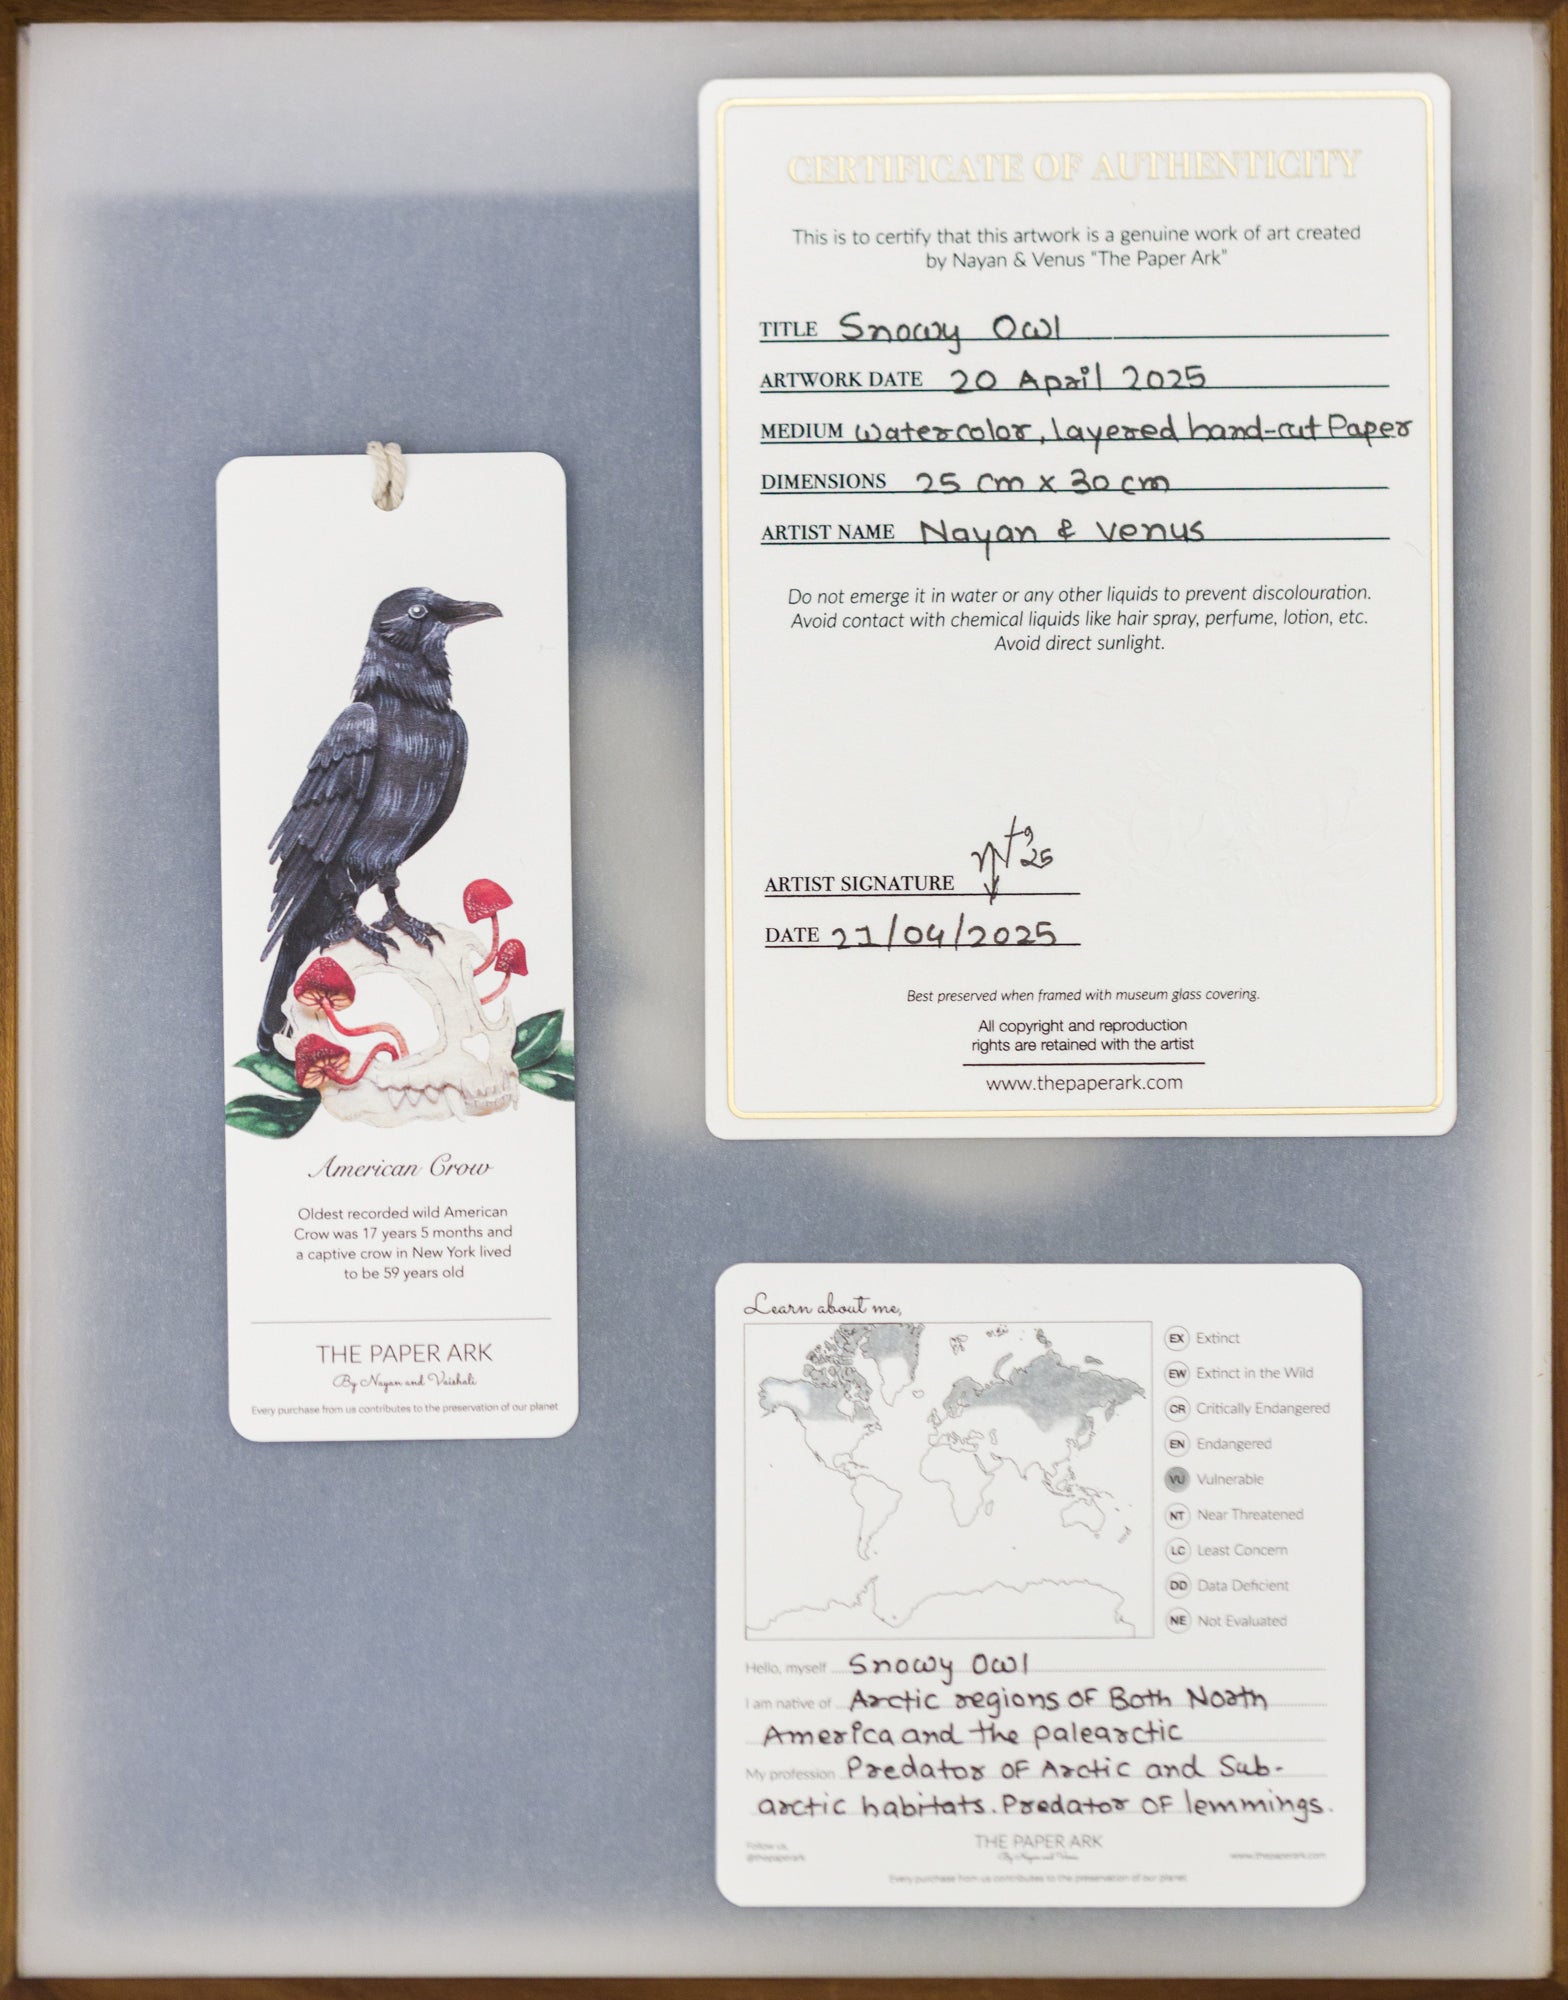 CERTIFICATE OF AUTHENTICITY
This is to certify that this artwork is a genuine work of art created
by Nayan & Venus "The Paper Ark"
TITLE Snowy Owl
ARTWORK DATE 20 April 2025
MEDIUM Watercolor, layered hand-cut Paper
DIMENSIONS 25 cm x 30 cm
ARTIST NAME Nayan & Venus
Do not emerge it in water or any other liquids to prevent discolouration.
Avoid contact with chemical liquids like hair spray, perfume, lotion, etc.
Avoid direct sunlight.
ARTIST SIGNATURE
DATE 21/04/2025
Best preserved when framed with museum glass covering.
All copyright and reproduction
rights are retained with the artist
www.thepaperark.com
American Crow
Oldest recorded wild American
Crow was 17 years 5 months and
a captive crow in New York lived
to be 59 years old
THE PAPER ARK
By Nayan and Vaishali
Every purchase from us contributes to the preservation of our planet
Learn about me,
EX Extinct
EW Extinct in the Wild
CR Critically Endangered
EN Endangered
VU Vulnerable
NT Near Threatened
LC Least Concern
DD Data Deficient
NE Not Evaluated
Hello, myself Snowy Owl
I am native of Arctic regions of Both North
America and the palearctic
My profession Predator of Arctic and Sub-
arctic habitats. Predator of lemmings.
Follow us,
@thepaperark
THE PAPER ARK
By Nayan and Venus
www.thepaperark.com
Every purchase from us contributes to the preservation of our planet